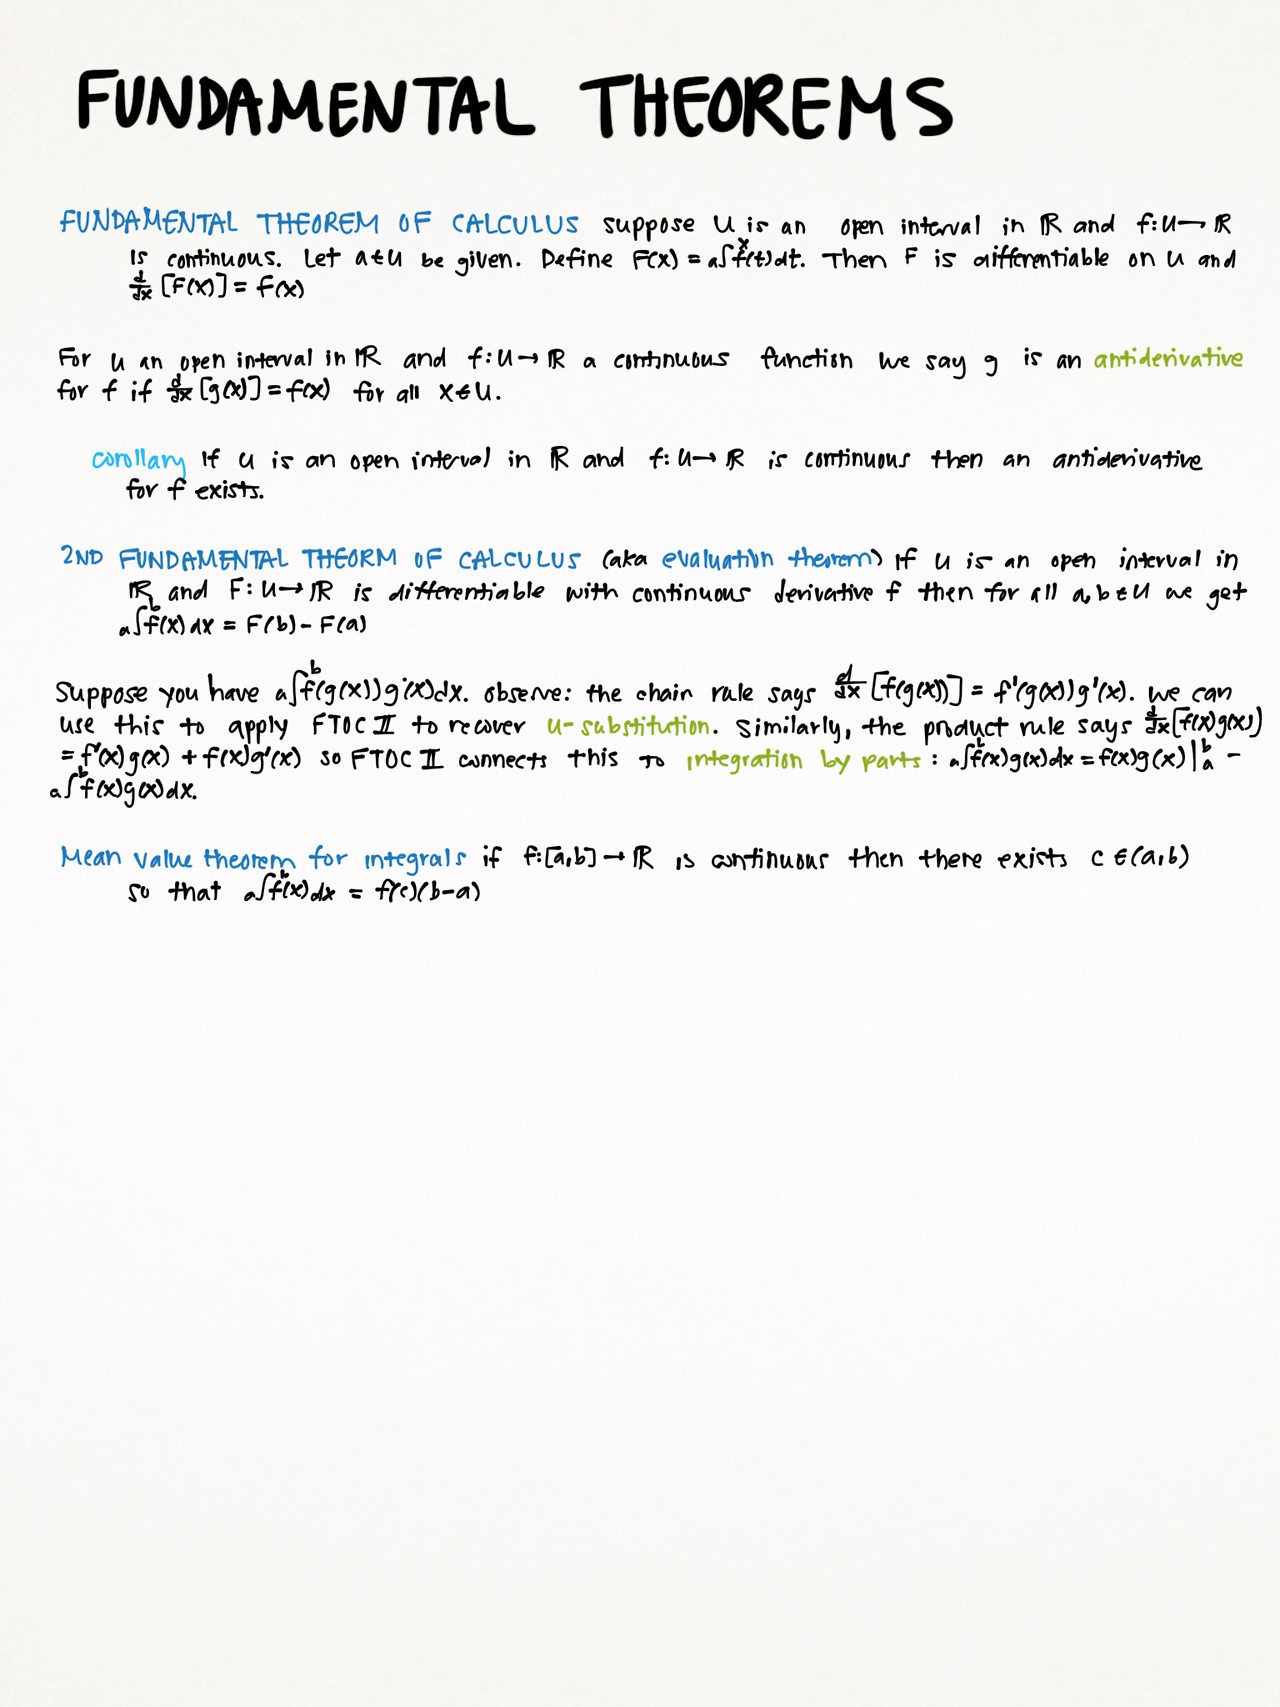 FUNDAMENTAL THEOREMS
FUNDAMENTAL THEOREM OF CALCULUS suppose U is an open interval in ℝ and f:U→ℝ
is continuous. Let a∈U be given. Define F(x) = a∫ˣf(t)dt. Then F is differentiable on U and
d/dx [F(x)] = f(x)
For U an open interval in ℝ and f:U→ℝ a continuous function we say g is an antiderivative
for f if d/dx [g(x)] = f(x) for all x∈U.
corollary If U is an open interval in ℝ and f:U→ℝ is continuous then an antiderivative
for f exists.
2ND FUNDAMENTAL THEORM OF CALCULUS (aka evaluation theorem) If U is an open interval in
ℝ and F:U→ℝ is differentiable with continuous derivative f then for all a,b∈U we get
a∫ᵇf(x)dx = F(b) - F(a)
Suppose you have a∫ᵇf(g(x))g'(x)dx. observe: the chain rule says d/dx [f(g(x))] = f'(g(x))g'(x). we can
use this to apply FTOC II to recover u-substitution. Similarly, the product rule says d/dx[f(x)g(x)]
= f'(x)g(x) + f(x)g'(x) so FTOC II connects this to integration by parts: a∫ᵇf(x)g(x)dx = f(x)g(x)|ᵇₐ -
a∫ᵇf(x)g(x)dx.
Mean value theorem for integrals if f:[a,b]→ℝ is continuous then there exists c∈(a,b)
so that a∫ᵇf(x)dx = f(c)(b-a)